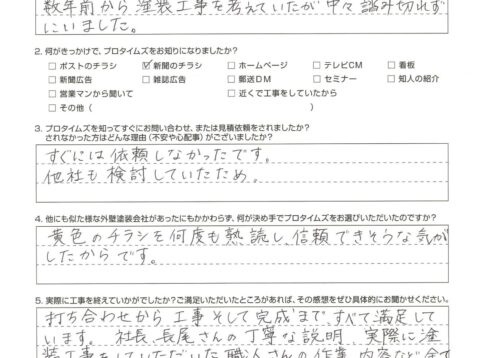 数年前から塗装工事を考えていたが中々踏み切れず
にいました。
2. 何がきっかけで、プロタイムズをお知りになりましたか?
□ ポストのチラシ ☑ 新聞のチラシ □ ホームページ □ テレビCM □ 看板
□ 新聞広告 □ 雑誌広告 □ 郵送DM □ セミナー □ 知人の紹介
□ 営業マンから聞いて □ 近くで工事をしていたから
□ その他 (
3. プロタイムズを知ってすぐにお問い合わせ、または見積依頼をされましたか?
されなかった方はどんな理由 (不安や心配事) がございましたか?
すぐには依頼しなかったです。
他社も検討していたため。
4. 他にも似た様な外壁塗装会社があったにもかかわらず、何が決め手でプロタイムズをお選びいただいたのですか?
黄色のチラシを何度も熟読し、信頼できそうな気が
したからです。
5. 実際に工事を終えていかがでしたか?ご満足いただいたところがあれば、その感想をぜひ具体的にお聞かせください。
打ち合わせから工事そして完成まですべて満足して
います。社長、長尾さんの丁寧な説明、実際に塗
装工事をしていただいた職人さんの作業内容など全て